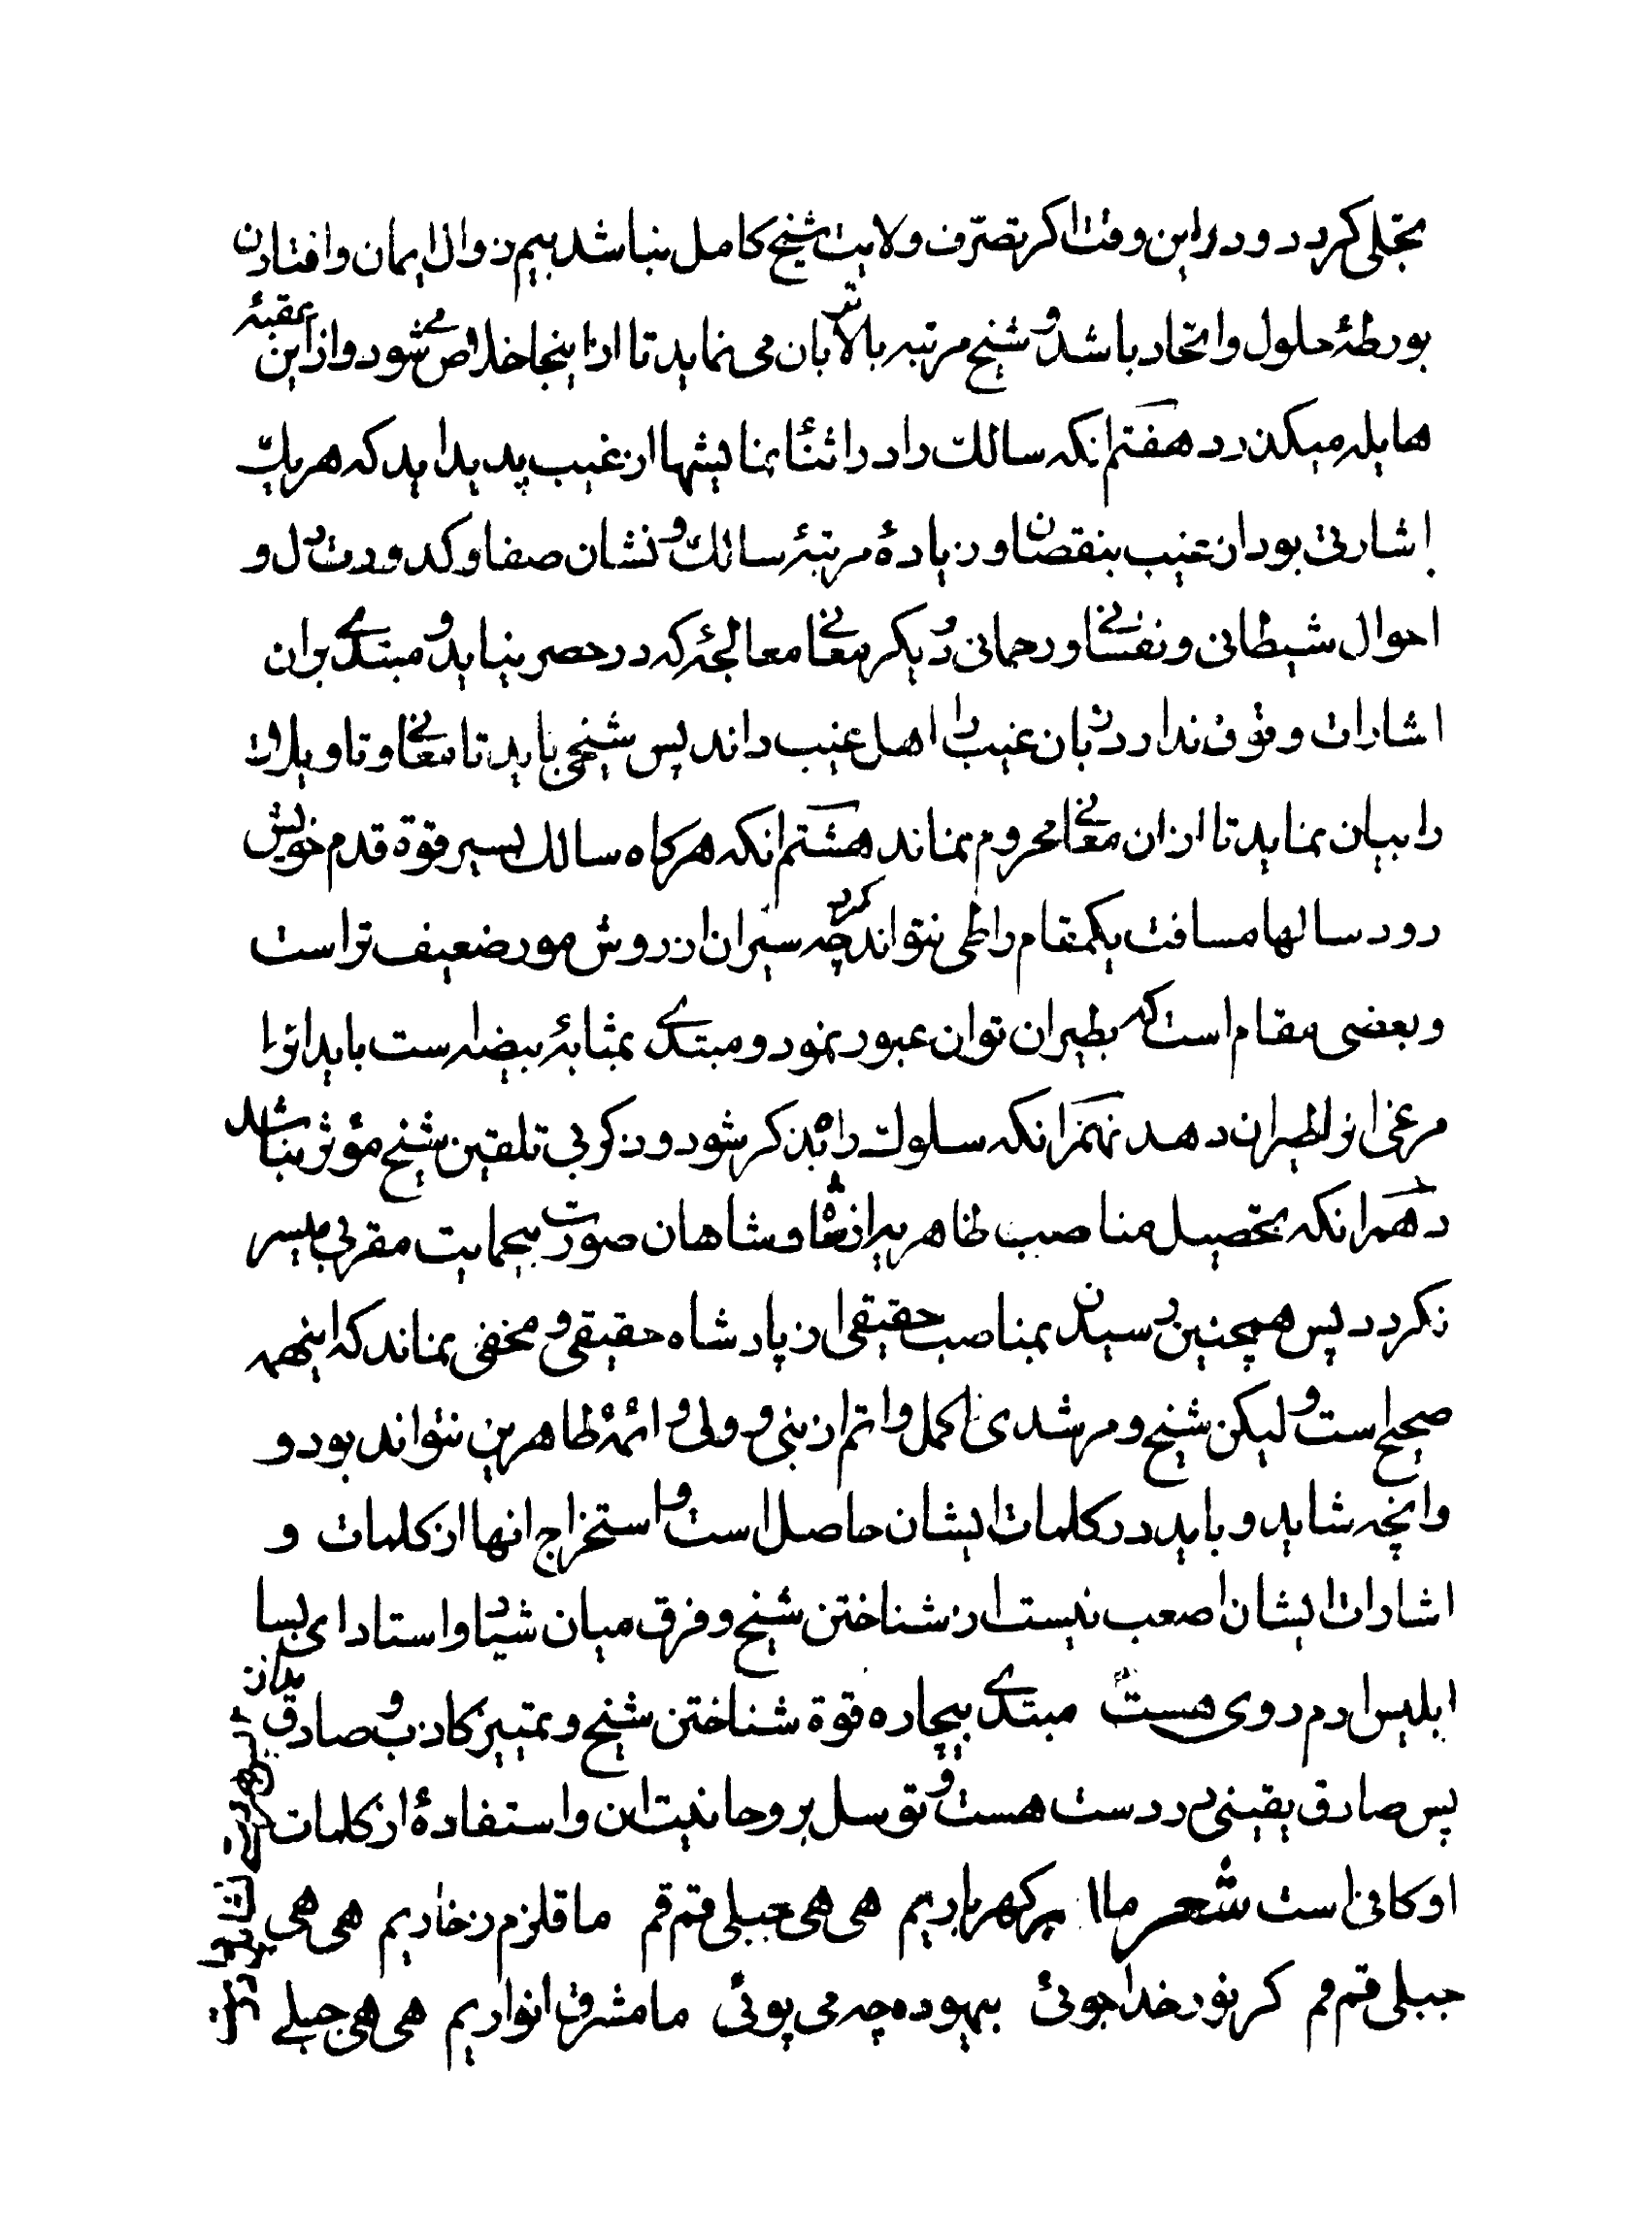 متجلی کردد و در این وقت اکر تصرّف ولایت شیخ کامل نباشد بیم زوال ایمان و افتادن
بورطهٔ حلول و اتحاد باشد و شیخ مرتبه بالاتر بان می نماید تا از اینجا خلاص می شود و از این عقبهٔ
هایله میکذرد هفتم انکه سالک را در اثنأ نمایشها از غیب پدید اید که هریک
اشارتی بود از غیب بنقصان و زیادهٔ مرتبهٔ سالک و نشان صفا و کدورت دل و
احوال شیطانی و نفسانی و رحمانی و دیکر معانی معالجهٔ که در حصر نیاید و مبتدی بران
اشارات وقوف ندارد زبان غیب را اهل غیب داند پس شیخی باید تا معانی و تاویلات
را بیان نماید تا از ان معانی محروم نماند هشتم انکه هرکاه سالک بسیر قوة قدم خویش
رود سالها مسافت یکمقام را طی نتواند کرد چه سیران از روش مور ضعیف تر است
و بعضی مقام است که بطیران توان عبور نمود و مبتدی بمثابهٔ بیضه است باید انرا
مرغی از طیران دهد نهم انکه سلوک راه بذکر شود و ذکر بی تلقین شیخ مؤثر نباشد
دهم انکه تحصیل مناصب ظاهریه از شاه و شاهان صورت بیحمایت مقربی میسر
نکردد پس همچنین رسیدن بمناصب حقیقی از پادشاه حقیقی و مخفی نماند که اینهمه
صحیح است و لیکن شیخ و مرشدی اکمل و اتم از نبی و ولی و ائمهٔ طاهرین نتواند بود و
وانچه شاید و باید در کلمات ایشان حاصل است و استخراج انها از کلمات و
اشارات ایشان اصعب نیست از شناختن شیخ و فرق میان شیاد و استاد ای بسا
ابلیس ادم روی هست مبتدی بیچاره قوة شناختن شیخ و تمییز کاذب و صادق ندارد
پس صادق یقینی در دست هست و توسل بروحانیت ان و استفادهٔ از کلمات
او کافی است شعر ما ابر کهرباریم هی هی جبلی قم قم ما قلزم زخاریم هی هی
جبلی قم قم کر نور خدا جوئی بیهوده چه می پوئی ما مشرق انواریم هی هی جبلی